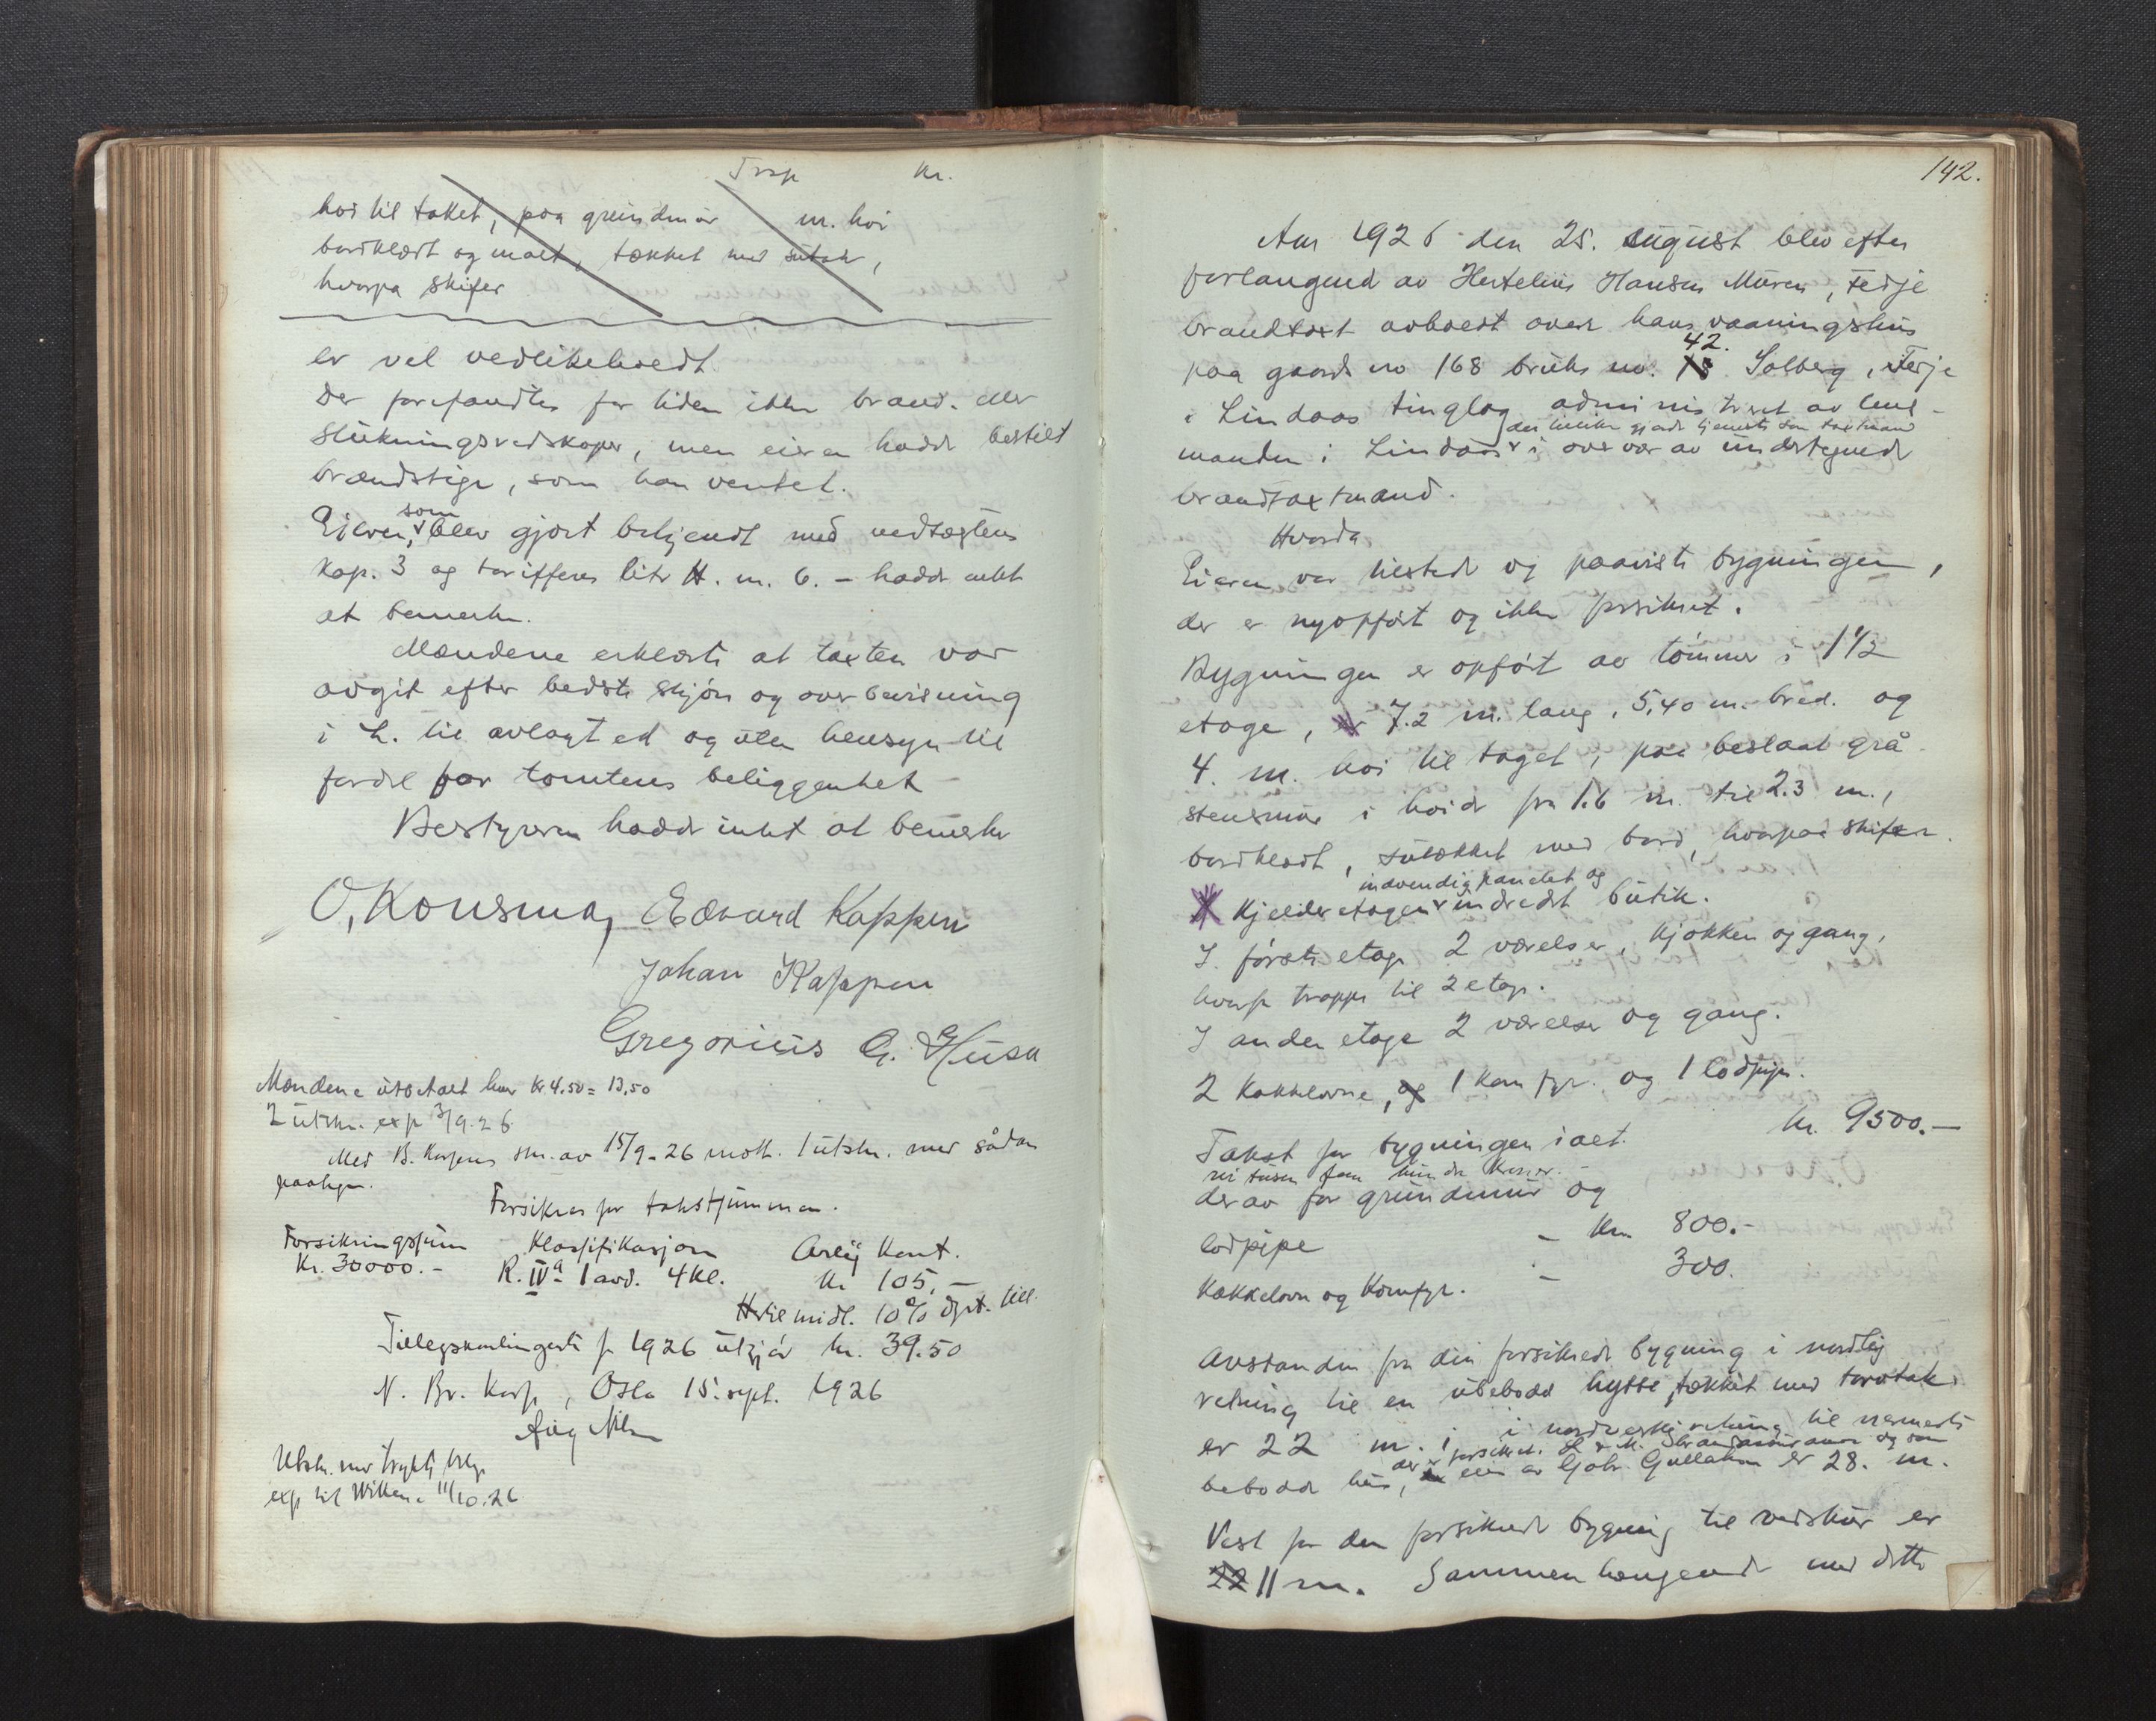 Trsp Kr.
høi til taket, paa grundmur m. høi
bordklædt og malt, tækket med sutak,
hvorpa skifer
er vel vedlikeholdt.
Der forefandtes for tiden ikke brand- eller
slukningsredskaper, men eieren hadde bestilt
brandstige, som han ventet.
Eieren, som blev gjort bekjendt med vedtægtens
Kap. 3 og tariffens litr H. m. 6. – hadde intet
at bemerke.
Mændene erklærte at taxten var
avgit efter bedste skjøn og overbevisning
i h. til avlagt ed og uten hensyn til
fordel for tomtens beliggenhet
Bestyreren hadde intet at bemerke
O. Konsmo, Edvard Kappen
Johan Kappen
Gregorius G. Husa
Mændene utbetalt hver kr 4.50 = 13,50
2 utskr. exp 3/9.26.
Med B. Kassens skr. av 15/9-26 mott. 1 utskr. med sådan
paategn.
Forsikres for takstsummen.
Forsikringssum Klassifikasjon Årlig Kont.
Kr. 30000.- R. IVa 1 avd. 4 Kl. Kr 105,-
Hvile midl. 10% dyrt. till.
Tillegskontingent f 1926 utgjør kr. 39.50
N. Br. Kasse, Oslo 15. sept. 1926
Utskr. med trykt
exp til 11/10.26
142.
Aar 1926 den 25. august blev efter
forlangende av Hertelius Hansen Muren, Fedje
brandtaxt avholdt over hans vaaningshus
42.
paa gaards no 168 bruks no. 18 Solberg, Fedje
i Lindaas tinglag administreret av lens-
der likeledes gjorde tjeneste som taxtmand
manden i Lindaas i overvær av undertegnede
brandtaxtmænd.
Hvorda
Eieren var tilstede og paaviste bygningen,
der er nyopført og ikke forsikret.
Bygningen er opført av tømmer i 1 1/2
etage, er 7.2 m. lang, 5,40 m. bred. og
4. m. høi til taget, paa beslaat grå
stensmur i høide fra 1.6 m. til 2.3 m.,
bordklædt, sutækket med bord, hvorpaa skifer.
indvendig panelet og
Kjelderetagen indredet butik.
I. første etage 2 værelser, kjøkken og gang,
hvorfra trappe til 2 etage.
I anden etage 2 værelser og gang.
2 Kakkelovne, og 1 komfyr. og 1 lodpipe.
Takst for bygningen ialt. kr. 9500.-
ni tusen fem hundre kroner.
derav for grundmur og
lodpipe – Kr. 800.-
Kakkelovn og Komfyr. – 300.
Avstanden fra den forsikrede bygning i nordlig
retning til en ubebodd hytte, tækket med torvtak
er 22 m. i nordvestlig retning til nærmeste
der er forsikret i brandassurance og som
bebodde hus, eies av Gabr. Gullaksen er 28. m.
Vest for den forsikrede bygning til vedskur er
22 11 m. Sammenhængende med dette